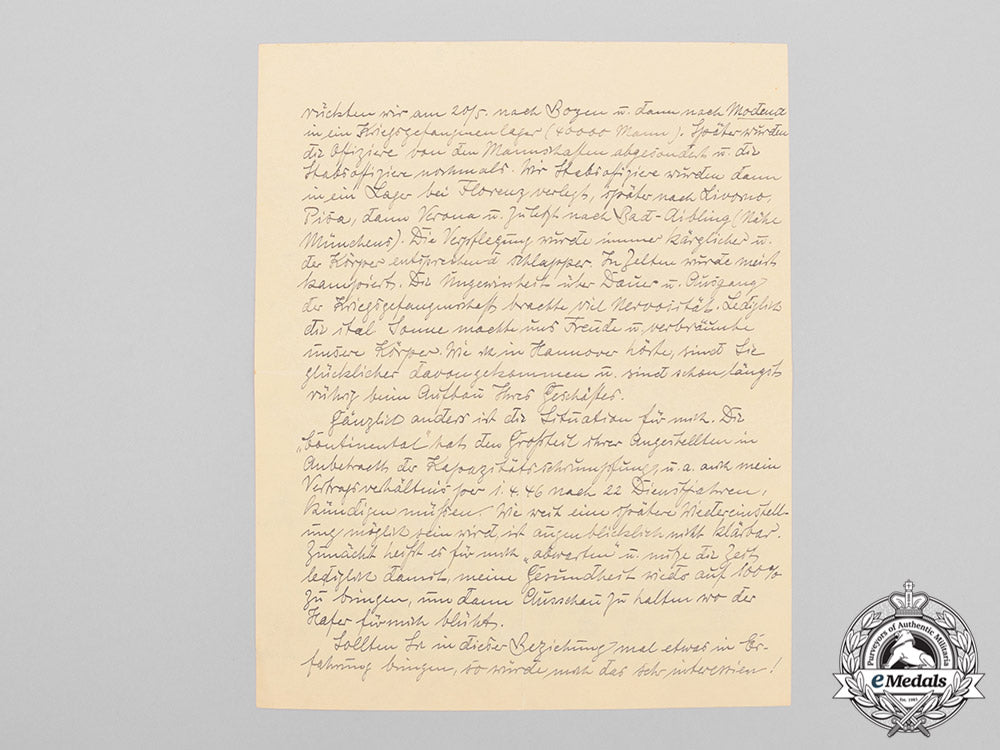 rückten wir am 20/5. nach Bozen u. dann nach Modena
in ein Kriegsgefangenenlager (40000 Mann). Später wurden
die Offiziere von den Mannschaften abgesondert u. die
Stabsoffiziere nochmals. Wir Stabsoffiziere wurden dann
in ein Lager bei Florenz verlegt, später nach Livorno,
Pisa, dann Verona u. zuletzt nach Bad-Aibling (Nähe
Münchens). Die Verpflegung wurde immer kärglicher u.
der Körper entsprechend schlapper. In Zelten wurde meist
kampiert. Die Ungewissheit über Dauer u. Ausgang
der Kriegsgefangenschaft brachte viel Nervosität. Lediglich
die ital. Sonne machte uns Freude u. verbräunte
unsere Körper. Wie ich in Hannover hörte, sind Sie
glücklicher davongekommen u. sind schon längst
rührig beim Aufbau Ihres Geschäftes.
Gänzlich anders ist die Situation für mich. Die
„Continental" hat den Großteil ihrer Angestellten in
Anbetracht der Kapazitätsschrumpfung, u.a. auch mein
Vertragsverhältnis per 1.4.46 nach 22 Dienstjahren,
kündigen müssen. Wie weit eine spätere Wiedereinstell-
ung möglich sein wird, ist augenblicklich nicht klärbar.
Zunächst heißt es für mich „abwarten" u. nütze die Zeit
lediglich damit, meine Gesundheit wieder auf 100%
zu bringen, um dann Ausschau zu halten wo der
Hafer für mich blüht.
Sollten Sie in dieser Beziehung mal etwas in Er-
fahrung bringen, so würde mich das sehr interessieren!
Purveyors of Authentic Militaria
eMedals